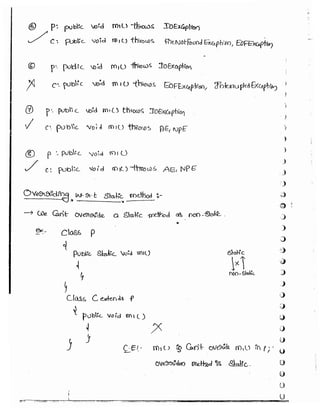 ⑤ P: public void m1() throws IOException
✓ C: public void m1() throws FileNotFoundException, EOFException
⑥ P: public void m1() throws IOException
X C: public void m1() throws EOFException, InterruptedException
⑦ P: public void m1() throws IOException
✓ C: public void m1() throws AE, NPE
⑧ P: public void m1()
✓ C: public void m1() throws AE, NPE
Overriding w.r.t static method :-
→ We Can't override a static method as non-static.
Ex:- Class P
{
public static void m1() static
{ X
} non-static
}
Class C extends P
{
public void m1()
{ X
}
} C.E:- m1() in C can't override m1() in P;
overridden method is static.